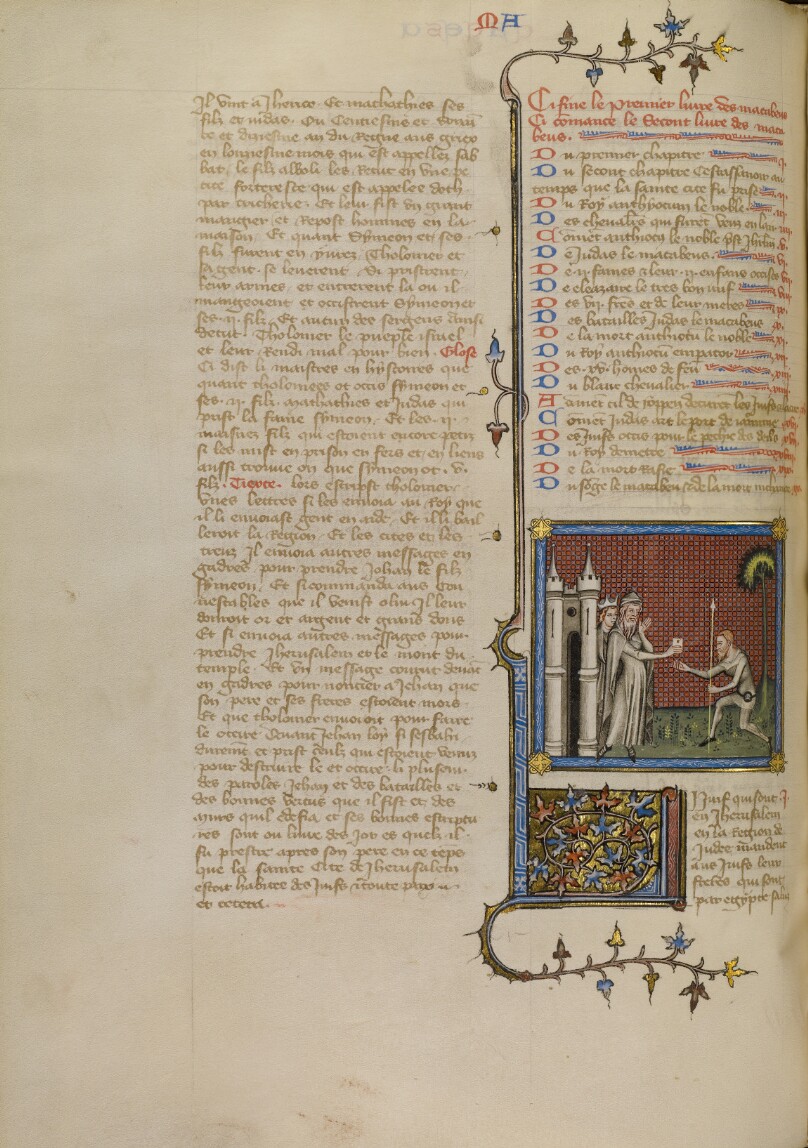 MA
Il vint a Iherico. Et mathathies ses
filz et iudas. Ou
en lonziesme mois qui est appellez sab
bat. le filz alboli les recut en vne pe
tite forteresce qui est appelee doth
par tricherie. Et leur fist vn grant
mangier et repost hommes en la
maison. Et quant Symeon et ses
filz furent en yurez. Tholomer et
sa gent se leuerent. Si pristrent
leur armes. et entrerent la ou il
mangeoient et occistrent Symeon et
ses .ii. filz. Et aucun des sergens Ainsi
decut Tholomer le pueple israel
et leur Rendi mal pour bien. Glose
Ci dist li maistres en hystoires que
quant tholomees ot occis symeon et
ses .ii. filz. mathathies et Iudas qui
prist la fame symeon. Et les .ii.
maisnez filz qui estoient encore petiz
si les mist en prison en fers et en liens
aussi trouue on que symeon ot .v.
filz. Tiexte. lors escript tholomer
vnes lettres si les enuoia au Roy que
il li enuoiast gent en aide. Et il li bail
leroit la Region. Et les cites et les
treuz. Il enuoia autres messages en
gadres pour prendre Iohan le filz
symeon. Et si commanda aus con
nestables que il venist o lui. Il leur
donroit or et argent et grans dons
Et si enuoia autres messages pour
prendre Iherusalem et le mont du
temple. Et vn message couru deuant
en gadres pour noncier a Iehan que
son pere et ses freres estoient mors.
Et que tholomer enuoioit pour faire
le occire. Quant Iehan loy si sesbahi
durement et prist ceulz qui estoient venuz
pour destruire le et occire. li pluseurs
des paroles Iehan et des batailles et
des bonnes vertus que il fist et des
murs quil edefia. et ses bonnes escriptu
res sont ou liure des Iors es quelz il
fu prestre apres son pere en ce teps
que la sainte Cite de Iherusalem
estoit habitee des Iuifs
et cetera.
Ci fine le premier liure des macabeus
Ci comance le Second liure des maca
beus.
Du premier chapitre .i.
Du second chapitre Cestassauoir au
temps que la sainte cite fu prise .ii.
Du Roy anthyocum le noble .iii.
Des cheualiers qui furent veuz en lair .iiii.
Coment anthiocu le noble .v.
De Iudas le macabeus .vi.
De .ii. fames et leur .ii. enfans occises .vii.
De eleazaire le tres bon iuif .viii.
Des .vii. freres et de leur meres .ix.
Des batailles Iudas le macabeus .x.
De la mort anthiocu le noble .xi.
Du Roy anthiocu eupator .xii.
Des .xv. homes de feu .xiii.
Du blanc cheualier
Coment cil de Ioppen decurent les Iuifs
Coment Iudas art le port de iamnie
Des Iuifs occis pour le pechie des ydoles
Du Roy demetre
De la mort Rasie
Du siege le macabeu et de la mort nichanor
Iuifs qui sont
en Iherusalem
en la Region de
Iudee mandent
aus Iuifs leur
freres qui sont
par egypte salu